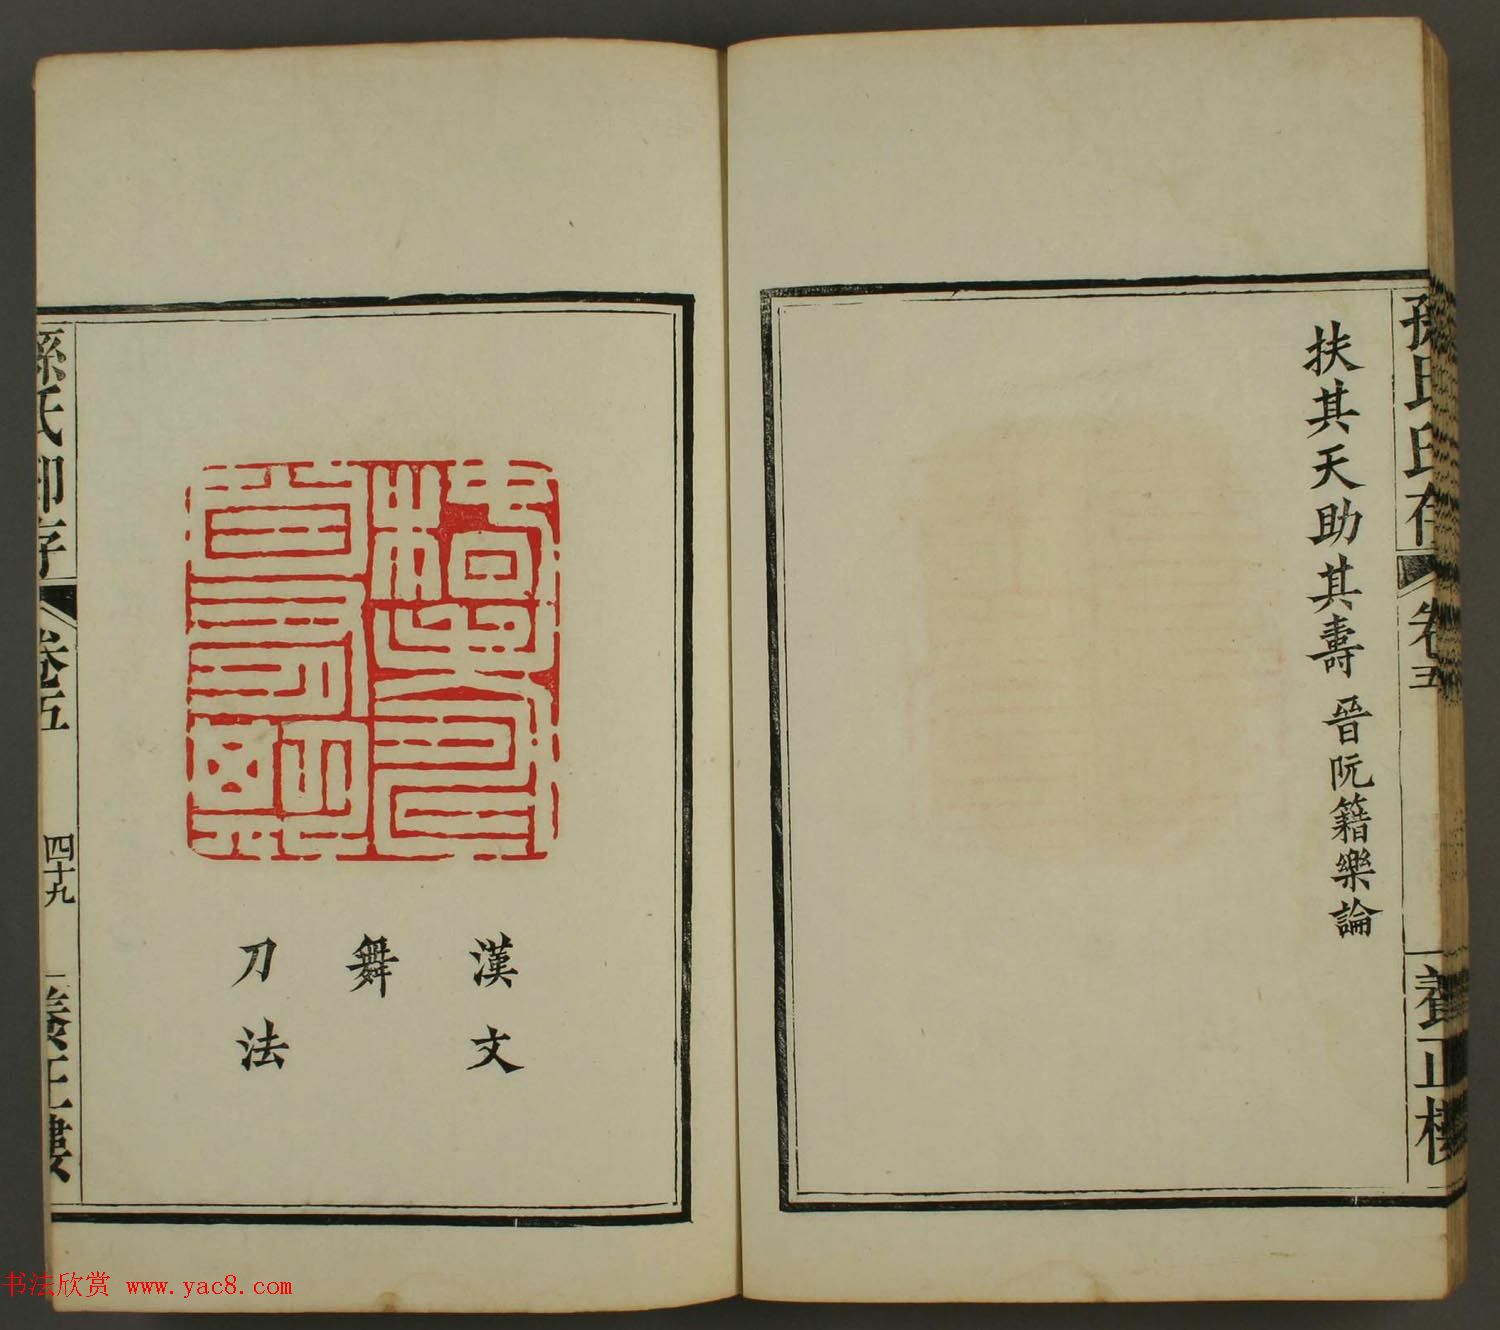 孫氏印存
卷五
養正樓
扶其天助其壽 晉阮籍樂論
漢文
舞
刀法
孫氏印存
卷五
四十九
養正樓
书法欣赏 www.yac8.com